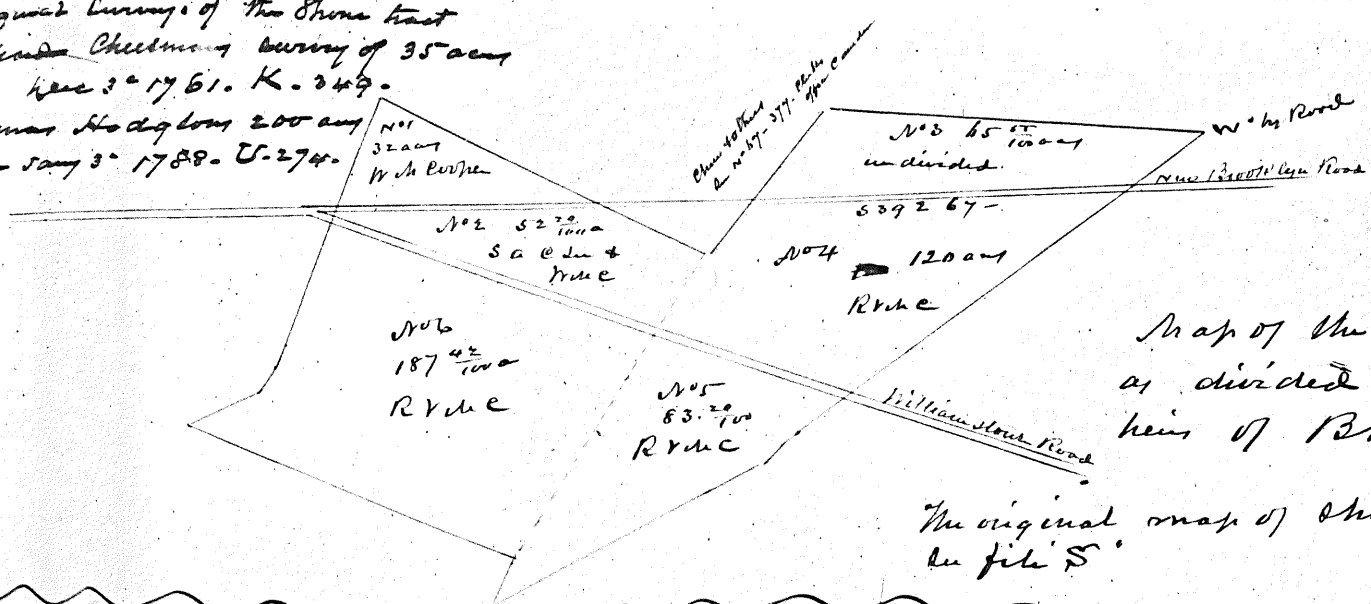 Surveys of the Shone tract
Cheesmans survey of 35 acres
Dec 3d 1761. K. 349.
Hodgsons 200 acres
Jany 3d 1788. U. 274.
No 1
32 acres
W M Cooper
Chew & others
See No 67 - 377 - 
office Camden
No 3 65 /100 acs
undivided.
Road
New Brooklyn Road
No 2 52 20/100 a
S a C Lee &
W M C
S 39 2 67 -
No 4 120 acs
R V M C
No 6
187 42/100 a
R V M C
No 5
83. 20/100
R V M C
Williamstown Road
Map of the
as divided
heirs of B
The original map of
See file S